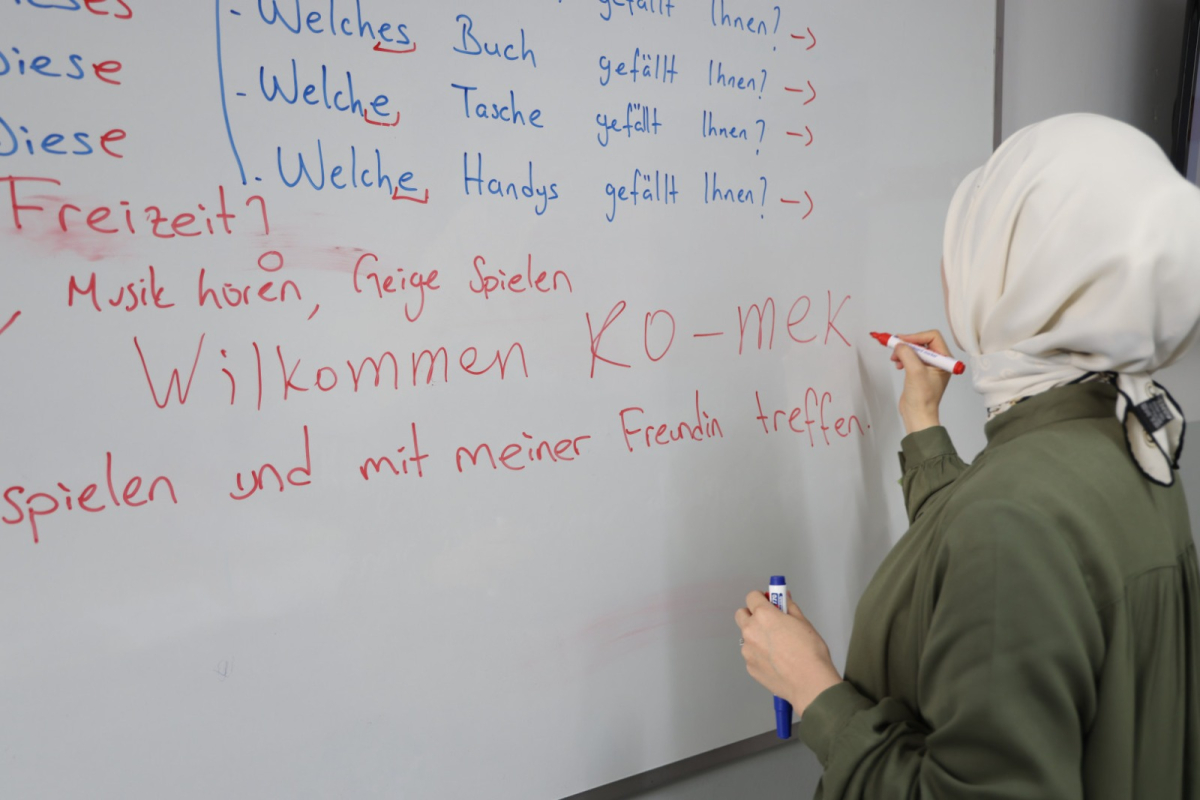 gefällt Ihnen? ->
- Welches Buch gefällt Ihnen? ->
Diese - Welche Tasche gefällt Ihnen? ->
Diese - Welche Handys gefällt Ihnen? ->
Freizeit?
Musik hören, Geige Spielen
Wilkommen KO-mek
spielen und mit meiner Freundin treffen.